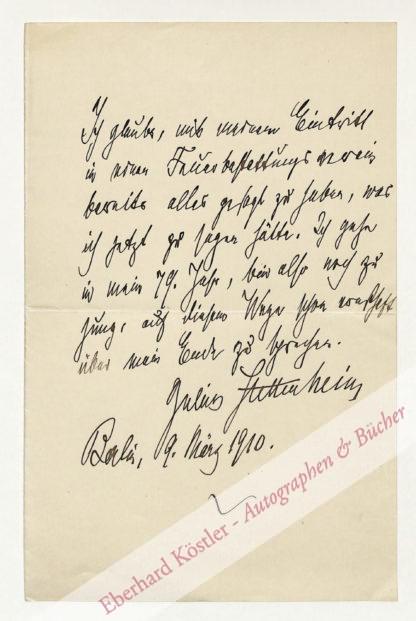 Ich glaube, mit meinem Eintritt
in einen Feuerbestattungsverein
bereits alles gesagt zu haben, was
ich jetzt zu sagen hätte. Ich gehe
in mein 79. Jahr, bin also noch zu
jung, auf diesem Wege schon ernsthaft
über mein Ende zu sprechen.
Julius Stettenheim
Berlin, 9. März 1910.
Eberhard Köstler - Autographen & Bücher